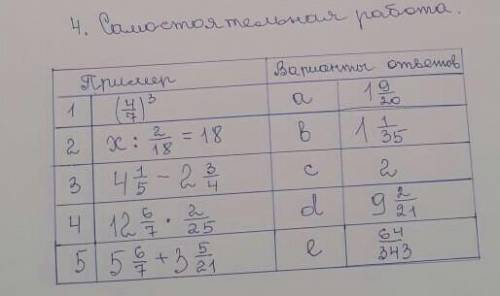 4. Самостоятельная работа.
Пример Варианты ответов
1 (4/7)³ a 1 9/20
2 x : 2/18 = 18 b 1 1/35
3 4 1/5 - 2 3/4 c 2
4 12 6/7 · 2/25 d 9 2/21
5 5 6/7 + 3 5/21 e 64/343